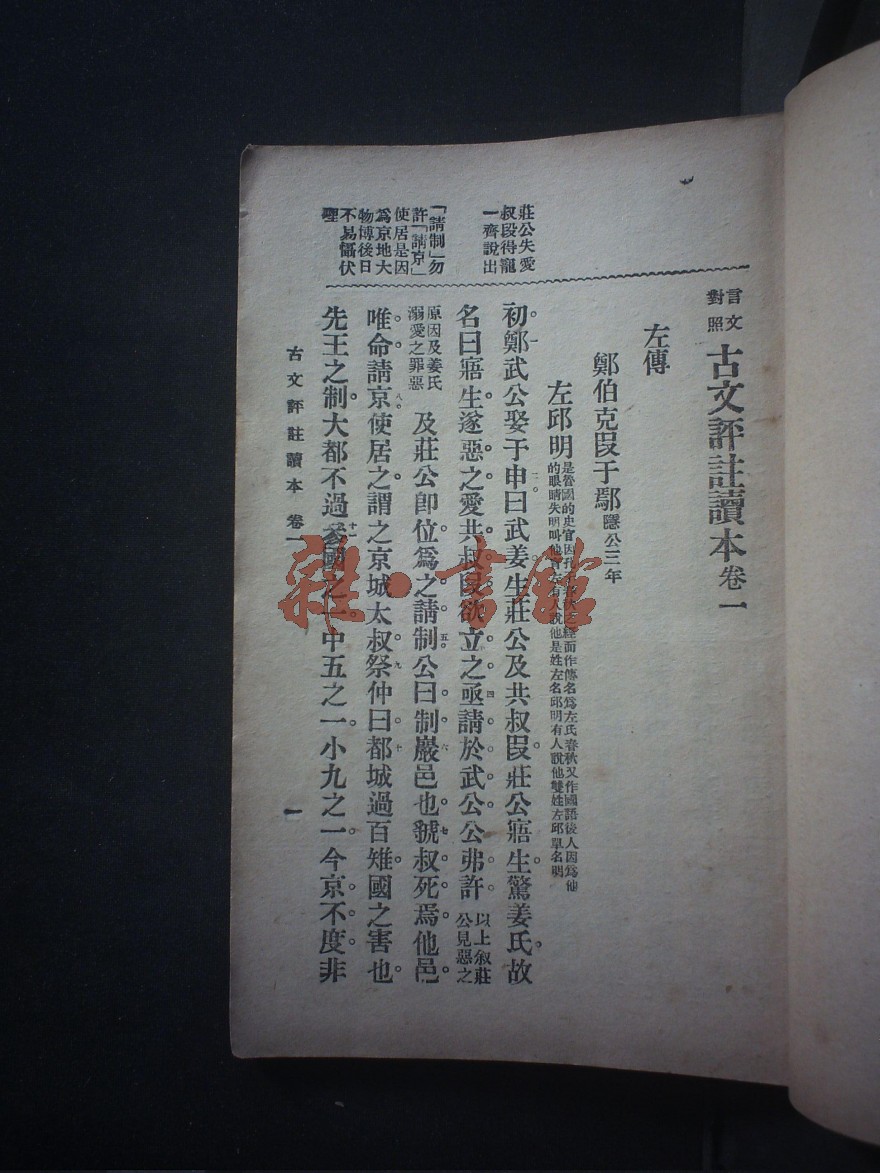 言文對照 古文評註讀本卷一
左傳
鄭伯克段于鄢 隱公三年
左邱明 是魯國的史官因孔子春秋之經而作傳名爲左氏春秋又作國語後人因爲他
的眼睛失明叫他盲左有人說他是姓左名邱明有人說他雙姓左邱單名明
莊公失愛
叔段得寵
一齊說出
初一鄭武公娶于申曰武姜二生莊公及共叔段莊公寤生驚姜氏故
名曰寤生遂惡之愛共叔段欲立之四亟請於武公公弗許 以上叙莊
公見惡之
「請制」勿
許「請京」
使居是因
爲京地大
物博後日
不易懾伏
哩
原因及姜氏
溺愛之罪惡
及莊公卽位爲之請制五公曰制六巖邑也虢七叔死焉他邑
唯命請京八使居之謂之京城太叔祭九仲曰都十城過百雉國之害也
先王之制大都不過參十一國之一中五之一小九之一今京不度非
古文評註讀本 卷一
一
雜·書館